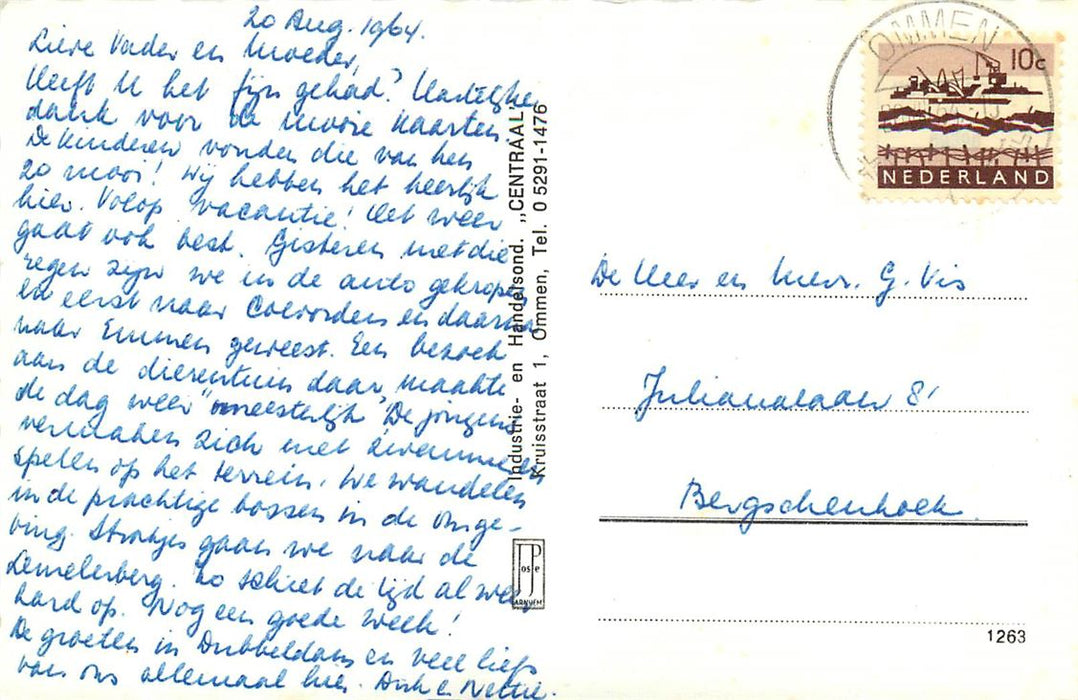 20 Aug. 1964.
Lieve Vader en Moeder,
Heeft U het fijn gehad? Hartelijke
dank voor de mooie kaarten.
De kinderen vonden die van hen
zo mooi! Wij hebben het heerlijk
hier. Volop vacantie! Het weer
gaat ook best. Gisteren met die
regen zijn we in de auto gekropen
en eerst naar Coevorden en daarna
naar Emmen geweest. Een bezoek
aan de dierentuin daar, maakte
de dag weer "meesterlijk". De jongens
vermaken zich met zwemmen en
spelen op het terrein. We wandelen
in de prachtige bossen in de omge-
ving. Straks gaan we naar de
Lemelerberg. Zo schiet de tijd al weer
hard op. Nog een goede week!
De groeten in Dubbeldam en veel liefs
van ons allemaal hier. Dirk en Nettie.
Industrie- en Handelsond. „CENTRAAL”
Kruisstraat 1, Ommen, Tel. 0 5291-1476
JosPe
ARNHEM
OMMEN
10c
NEDERLAND
De Heer en Mevr. G. Vis
Julianalaan 81
Bergschenhoek.
1263